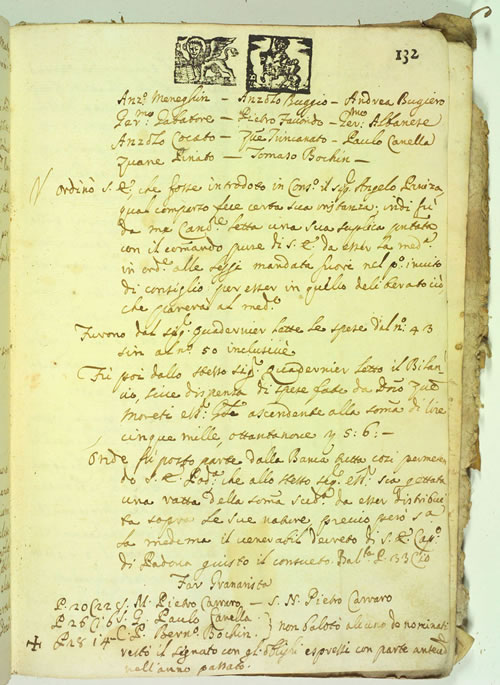 132
Anz.º Meneghin – Anzolo Buggio – Andrea Bugiero
Ger.mo Salvatore – Pietro Facundo – Ger.mo Albanese
Anzolo Cocato – Zuē Trincanato – Paulo Canella
Zuane Pinato – Tomaso Bochin –
Ordinò S. E., che fosse introdoto in Cons.º il sig.r Angelo
qual comparso fece certa sua instanza, indi fù
da me Canc.re letta una sua suplica puntata
con il comando pure di S. E. da esser la med.a
in ord.e alle leggi mandata fuori nel p.º invito
di consiglio per esser in quello deliberato ciò
che parerà al med.º
Furono dal sig.r Quadernier lette le spese dal n.º 43
sin al n.º 50 inclusivè
Fù poi dallo stesso sig.r Quadernier letto il Bilan
cio, sive dispensa di spese fate da Dno Zuē
Moreti ascendente alla soma di lire
cinque mille, ottantanove 5 : 6 : –
Onde fù posto parte dalla Banca tutta così permeten
do S. E. Pod.à che allo stesso sig.r sia gettata
una ratta della soma sud.a da esser distribui
ta sopra le sue nature previo però
la medema il venerabil decreto di S. E. Cap.º
di Padova giusto il consueto Bal.ta P. 33 C 20
Far Granarista
P. 20 C 22 S. M. Pietro Carraro – S. N. Pietro Carraro
P. 26 C. 16 S. G. Paulo Canella
P. 28 14 C. P. Bern.º Bochin } non balotò alcuno de nominati
restò il signato con gl'oblighi espressi con parte anteced
nell'anno passato.